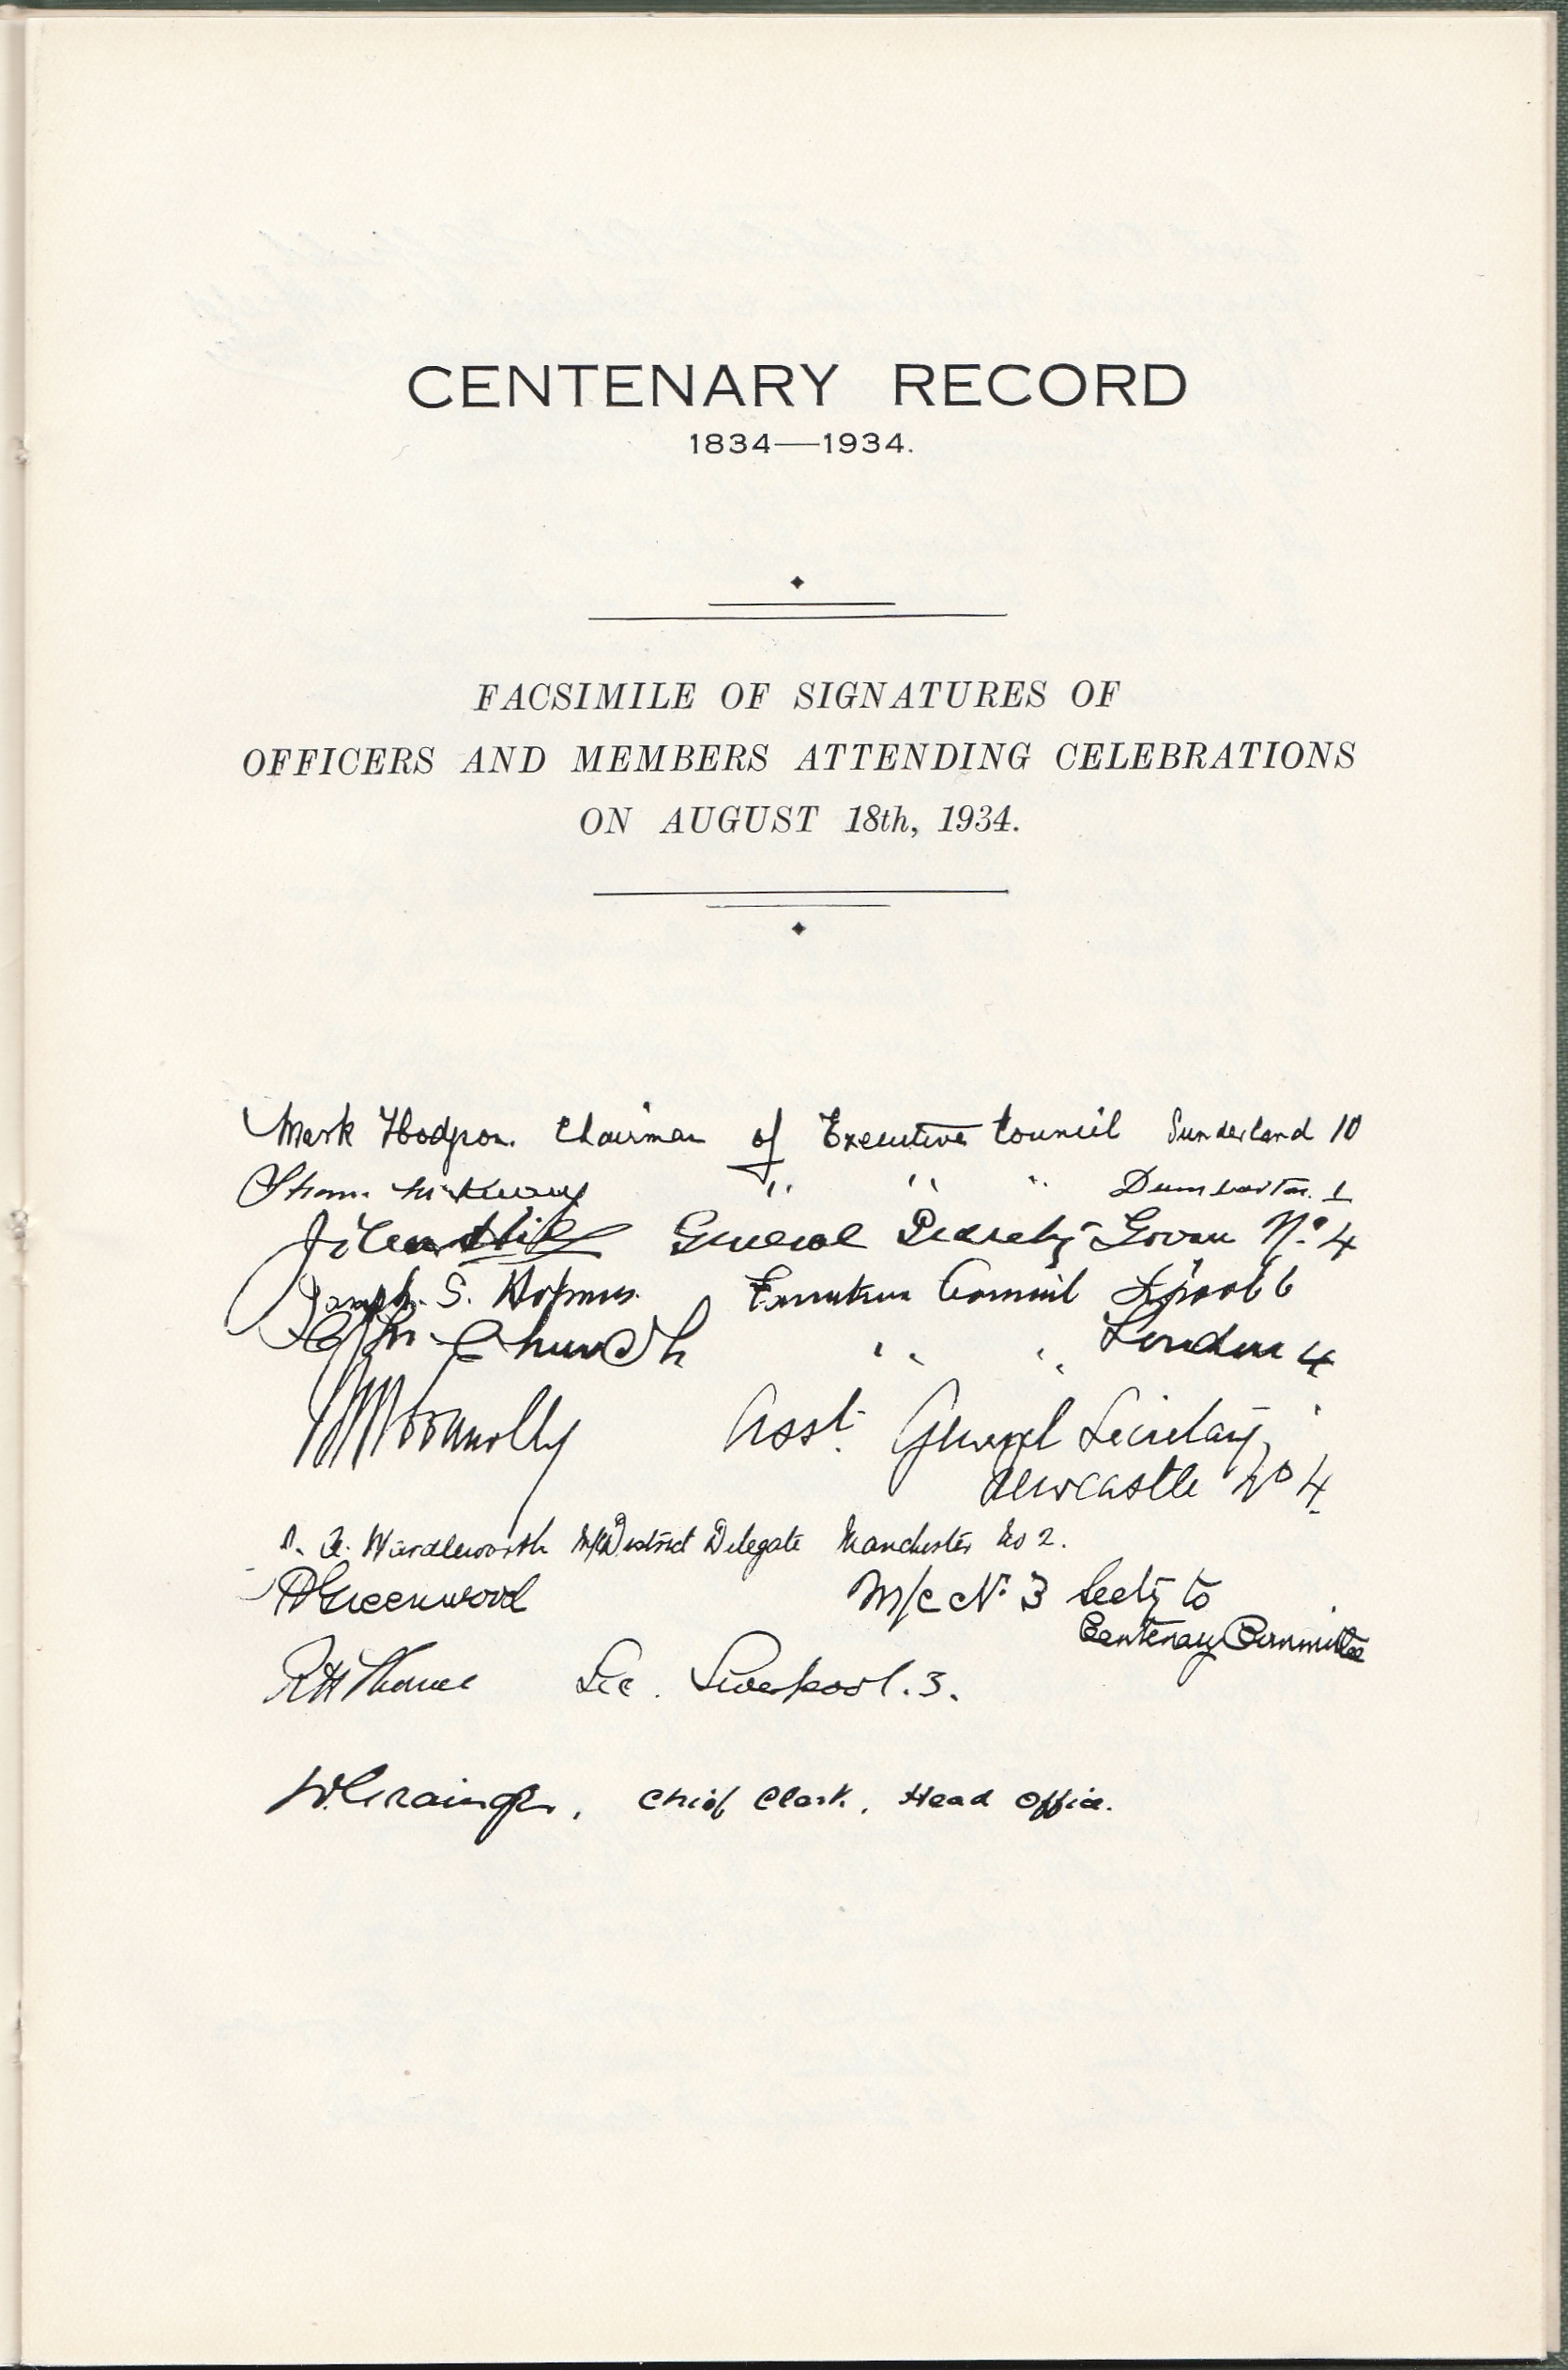 CENTENARY RECORD
1834—1934.
FACSIMILE OF SIGNATURES OF
OFFICERS AND MEMBERS ATTENDING CELEBRATIONS
ON AUGUST 18th, 1934.
Mark Hodgson. Chairman of Executive Council Sunderland 10
" " " Dumbarton. 1
General Secrety Govan No. 4
Joseph. S. Executive Council L'pool 6
Church " " London 4
Connolly Asst. General Secretary,
Newcastle No 4.
Wardleworth M/c District Delegate Manchester No 2.
Greenwood M/c No 3 Secty to
Centenary Committee
R H Sec. Liverpool. 3.
W Grainger, Chief Clerk, Head Office.